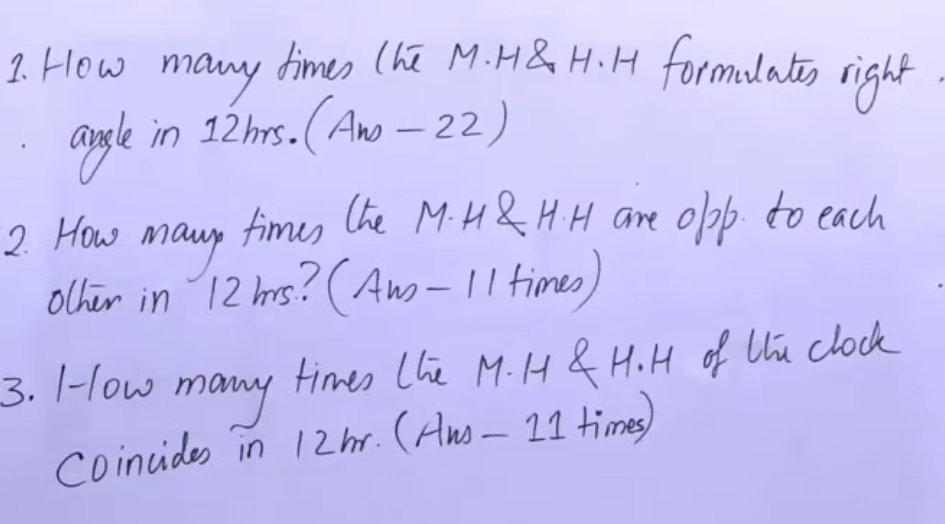 1. How many times the M.H & H.H formulates right
angle in 12hrs. (Ans – 22)
2. How many times the M.H & H.H are opp. to each
other in 12 hrs.? (Ans – 11 times)
3. How many times the M.H & H.H of the clock
Coincides in 12 hr. (Ans – 11 times)